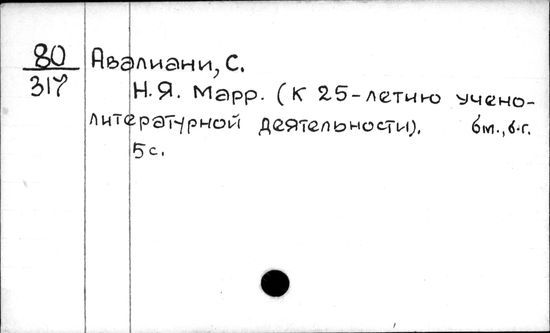 80
317
Авалиани, С.
Н.Я. Марр. (К 25-летию учено-
литературной деятельности). б.м., б.г.
5 с.